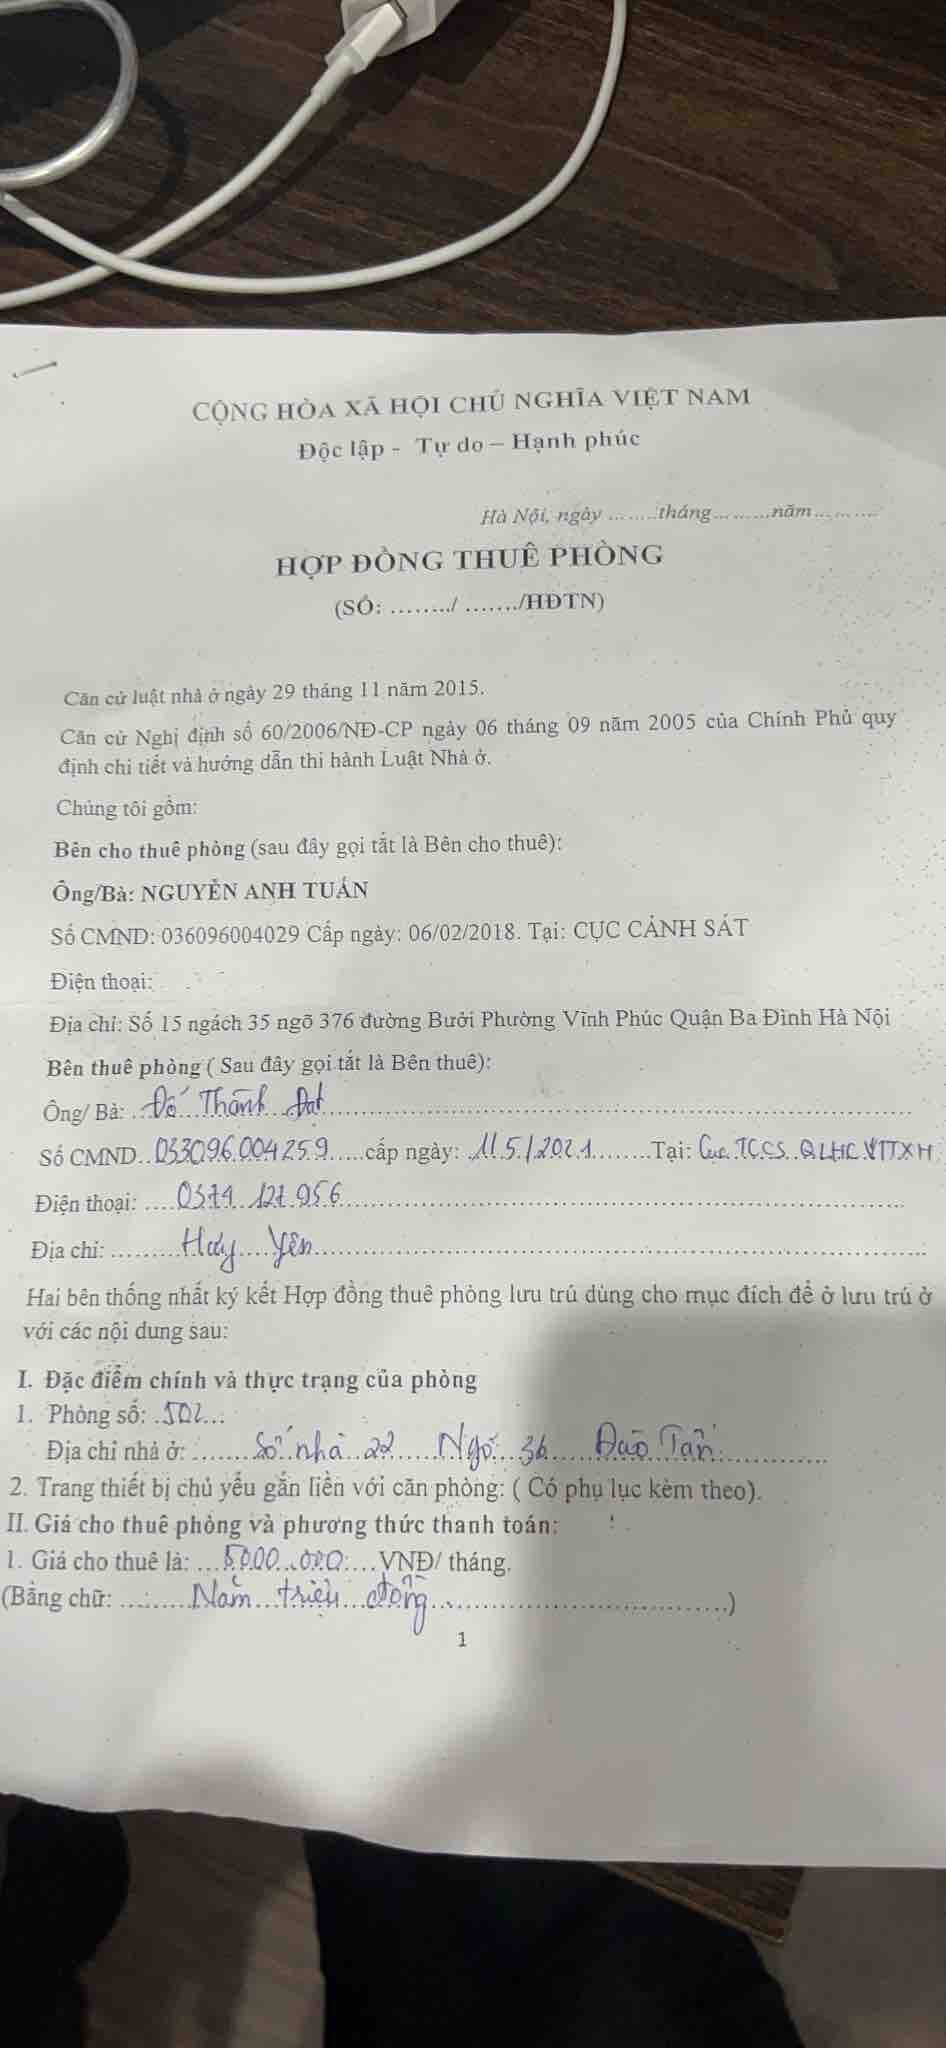 CỘNG HÒA XÃ HỘI CHỦ NGHĨA VIỆT NAM
Độc lập - Tự do – Hạnh phúc
Hà Nội, ngày ........tháng.........năm..........
HỢP ĐỒNG THUÊ PHÒNG
(SỐ: ......../ ......./HĐTN)
Căn cứ luật nhà ở ngày 29 tháng 11 năm 2015.
Căn cứ Nghị định số 60/2006/NĐ-CP ngày 06 tháng 09 năm 2005 của Chính Phủ quy
định chi tiết và hướng dẫn thi hành Luật Nhà ở.
Chúng tôi gồm:
Bên cho thuê phòng (sau đây gọi tắt là Bên cho thuê):
Ông/Bà: NGUYỄN ANH TUẤN
Số CMND: 036096004029 Cấp ngày: 06/02/2018. Tại: CỤC CẢNH SÁT
Điện thoại:
Địa chỉ: Số 15 ngách 35 ngõ 376 đường Bưởi Phường Vĩnh Phúc Quận Ba Đình Hà Nội
Bên thuê phòng ( Sau đây gọi tắt là Bên thuê):
Ông/ Bà: Đỗ Thành Đạt
Số CMND 033096004259 cấp ngày: 11/5/2021 Tại: Cục TCCS QLHC VTTXH
Điện thoại: 0374 127 956
Địa chỉ: Yên
Hai bên thống nhất ký kết Hợp đồng thuê phòng lưu trú dùng cho mục đích để ở lưu trú ở
với các nội dung sau:
I. Đặc điểm chính và thực trạng của phòng
1. Phòng số: 502
Địa chỉ nhà ở: Số nhà 22 Ngõ 36 Đào Tấn
2. Trang thiết bị chủ yếu gắn liền với căn phòng: ( Có phụ lục kèm theo).
II. Giá cho thuê phòng và phương thức thanh toán:
1. Giá cho thuê là: 5000.000 VNĐ/ tháng.
(Bằng chữ: Năm triệu đồng )
1